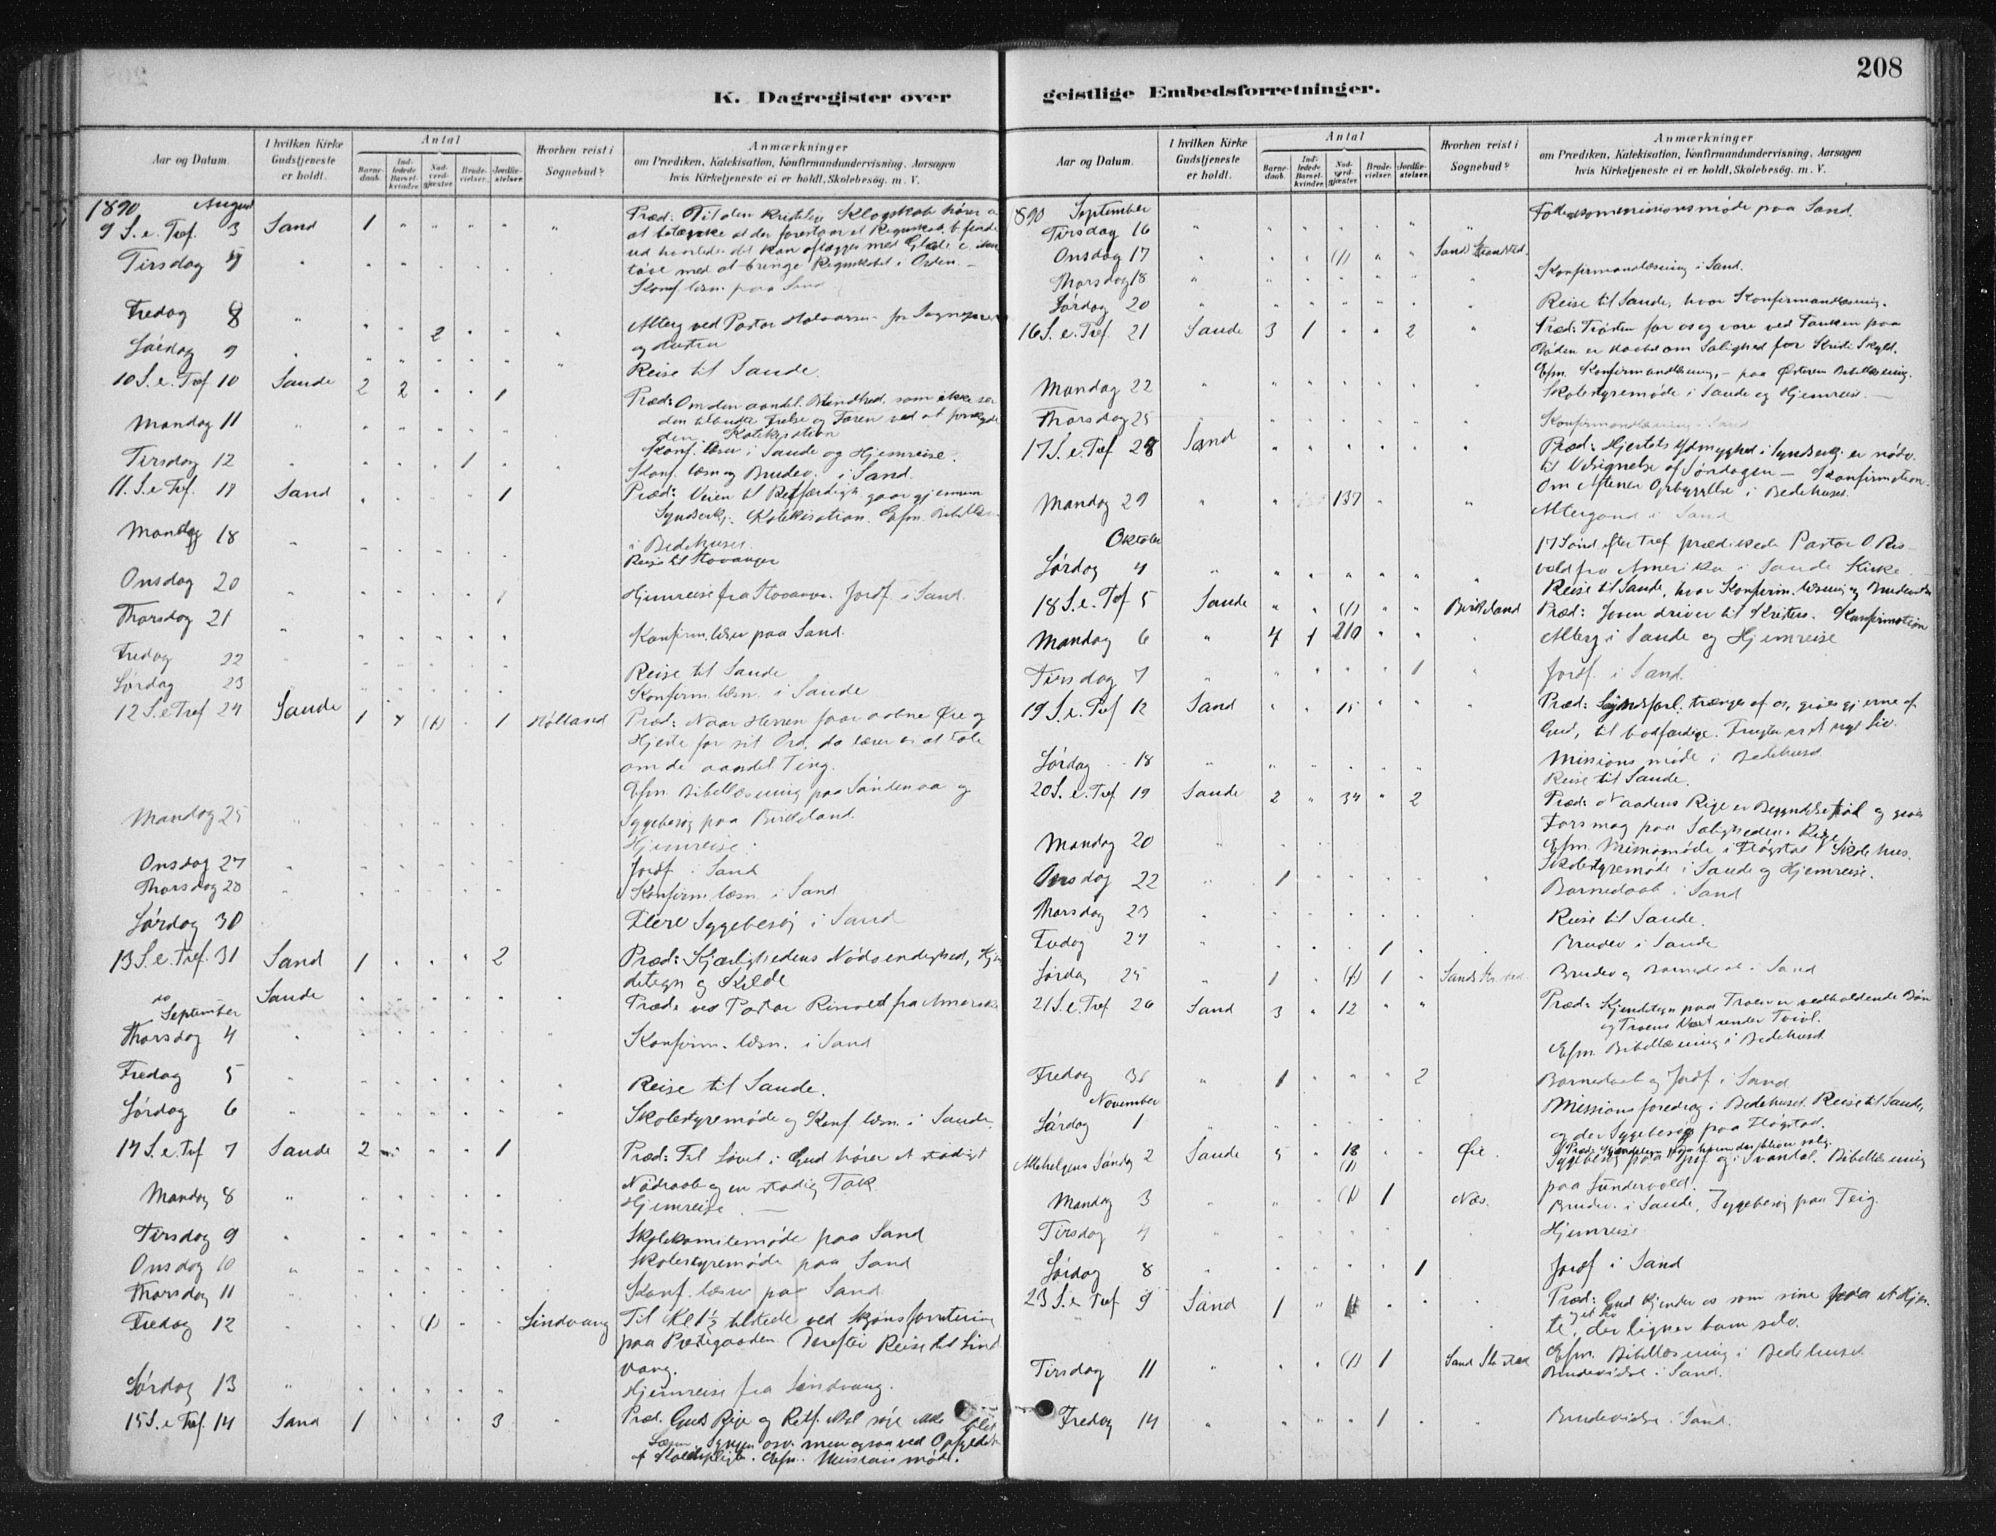 208
K. Dagregister over
geistlige Embedsforretninger.
Aar og Datum.
I hvilken Kirke Gudstjeneste er holdt.
Antal
Barnedaab.
Indledede Barselkvinder.
Nadverdgjæster
Brudevielser.
Jordfæstelser.
Hvorhen reist i Sognebud?
Anmærkninger
om Prædiken, Katekisation, Konfirmandundervisning, Aarsagen
hvis Kirketjeneste ei er holdt, Skolebesøg. m. V.
1890 August
9 S. e. Tref. 3 Sand 1 Præd: Til den kristelige Klogskab hører
at betænke at der forestaar et Regnskab,
ved hvorledes det kan aflægges med Glæde
med at bringe Regnskabet i Orden.
Tirsdag Konf. læsn. paa Sand
Fredag 8 2 Alterg. ved Pastor
og
Lørdag 9 Reise til Sande.
10 S. e. Tref 10 Sande 2 2 1 Præd: Om den aandel. Blindhed, som ikke ser
den tilbudte Frelse og Faren ved at
den. Katekisation
Mandag 11 Konf. læsn i Sande og Hjemreise.
Tirsdag 12 1 Konf. læsn og Brudev. i Sand.
11. S. e. Tref. 17 Sand 1 Præd: Veien til Retfærdigh. gaar gjennem
Syndserk. Katekisation. Efm. Bibellæsn
i Bedehuset.
Mandag 18 Reise til Stavanger
Onsdag 20 1 Hjemreise fra Stavanger. Jordf. i Sand.
Thorsdag 21 Konfirm. læsn paa Sand.
Fredag 22 Reise til Sande
Lørdag 23 Konfirm. læsn. i Sande
12 S. e Tref 24 Sande 1 (1) 1 Hølland Præd: Naar Herren faar aabne Øre og
Hjerte for sit Ord, da lærer os at tale
om de aandel. Ting.
Efm. Bibellæsning paa Søndenaa og
Sygebesøg paa Birkeland.
Mandag 25 Hjemreise.
Onsdag 27 Jordf. i Sand
Thorsdag 28 Konfirm. læsn. i Sand
Lørdag 30 Flere Sygebesøg i Sand
13 S. e. Tref. 31 Sand 1 2 Præd: Kjærlighedens Nødvendighed, Kjen
detegn og Kilde
do Sande Præd. ved Pastor fra Amerika
September
Thorsdag 4 Konfirm. læsn. i Sand
Fredag 5 Reise til Sande.
Lørdag 6 Skolestyremøde og Konf læsn. i Sande.
14 S. e. Tref 7 Sande 2 1 Præd: Til Livet i Gud hører et stadigt
Nødraab og en stadig Tak.
Mandag 8 Hjemreise.
Tirsdag 9 Skolekomitemøde paa Sand
Onsdag 10 Skolestyremøde paa Sand
Thorsdag 11 Konf. læsn paa Sand
Fredag 12 (1) Lindvang Til Kl 1½ tilstede ved Skjønsforretning
paa Præstegaarden. Derefter Reise til Lind
vang.
Lørdag 13 Hjemreise fra Lindvang.
15 S. e Tref. 14 Sand 1 3 Præd. Guds Rige og Retf. skal søge ikke blot
Læsn. osv. men ogsaa ved Opfyldelse
af Kaldspligter. Efm. Missionsmøde.
Aar og Datum.
I hvilken Kirke Gudstjeneste er holdt.
Antal
Barnedaab.
Indledede Barselkvinder.
Nadverdgjæster
Brudevielser.
Jordfæstelser.
Hvorhen reist i Sognebud?
Anmærkninger
om Prædiken, Katekisation, Konfirmandundervisning, Aarsagen
hvis Kirketjeneste ei er holdt, Skolebesøg. m. V.
1890 September
Tirsdag 16 møde paa Sand.
Onsdag 17 (1) Sand Strandsted
Thorsdag 18 Konfirmandlæsning i Sand.
Lørdag 20 Reise til Sande, hvor Konfirmandlæsning.
16 S. e. Tref. 21 Sande 3 1 2 Præd: Trøsten for os og vore ved Tanken paa
Døden er Haabet om Salighed for Kristi Skyld.
Efm. Konfirmandlæsning, paa Bibellæsning.
Mandag 22 Skolestyremøde i Sande og Hjemreise.
Thorsdag 25 Konfirmandlæsning i Sand
17 S. e. Tref 28 Sand Præd: Hjertets Ydmyghed i Syndserk. er nødv.
til Velsignelse af Søndagen — Konfirmation.
Om Aftenen Opbyggelse i Bedehuset.
Mandag 29 137 Altergang i Sand
17 Sønd. efter Tref prædikede Pastor O.
fra Amerika i Sande Kirke
Oktober
Lørdag 4 Reise til Sande, hvor Konfirm. læsning og
18 S. e. Tref 5 Sande (1) Birkeland Præd: Loven driver til Kristus. Konfirmation
Mandag 6 4 1 210 Alterg i Sande og Hjemreise
Tirsdag 7 1 Jordf. i Sand.
19 S. e. Tref 12 Sand 15 Præd: Syndsforl. trænges af os, gives gjerne af
Gud, til bodfærdige. Frugten er et nyt Liv.
Missionsmøde i Bedehuset
Lørdag 18 Reise til Sande.
20 S. e. Tref 19 Sande 2 34 2 Præd: Naadens Rige er Begyndelse til og giver
Forsmag paa Salighedens Rige
Efm. Missmøde i Skolehus.
Mandag 20 Skolestyremøde i Sande og Hjemreise.
Onsdag 22 1 Barnedaab i Sand
Thorsdag 23 Reise til Sande.
Fredag 24 1 Brudev i Sande
Lørdag 25 1 (1) 1 Brudev og Barnedaab. Sand
21 S. e. Tref 26 Sand 3 12 Præd: Kjendetegn paa Troen er vedholdende Bøn
og Troens Vext under Tvivl.
Efm. Bibellæsning i Bedehuset
Fredag 31 1 2 Barnedaab og Jordf i Sand
November
Lørdag 1 Missionsforedrag i Bedehuset. Reise til Sande,
og der Sygebesøg paa
Allehelgens Søndag 2 Sande 5 18 (1) Øie
Sygebesøg paa og i Svandal. Bibellæsning
paa
Mandag 3 (1) 1 Næs. Brudev. i Sande. Sygebesøg paa Teig.
Tirsdag 4 Hjemreise
Lørdag 8 1 Jordf i Sand
23 S. e Tref 9 Sand 1 Præd: Gud kjender os som sine paa et Hjer
te, der ligner ham selv.
Efm. Bibellæsning i Bedehuset
Tirsdag 11 (1) 1 Brudevielse i Sand.
Fredag 14 1 Brudevielse. Sand.